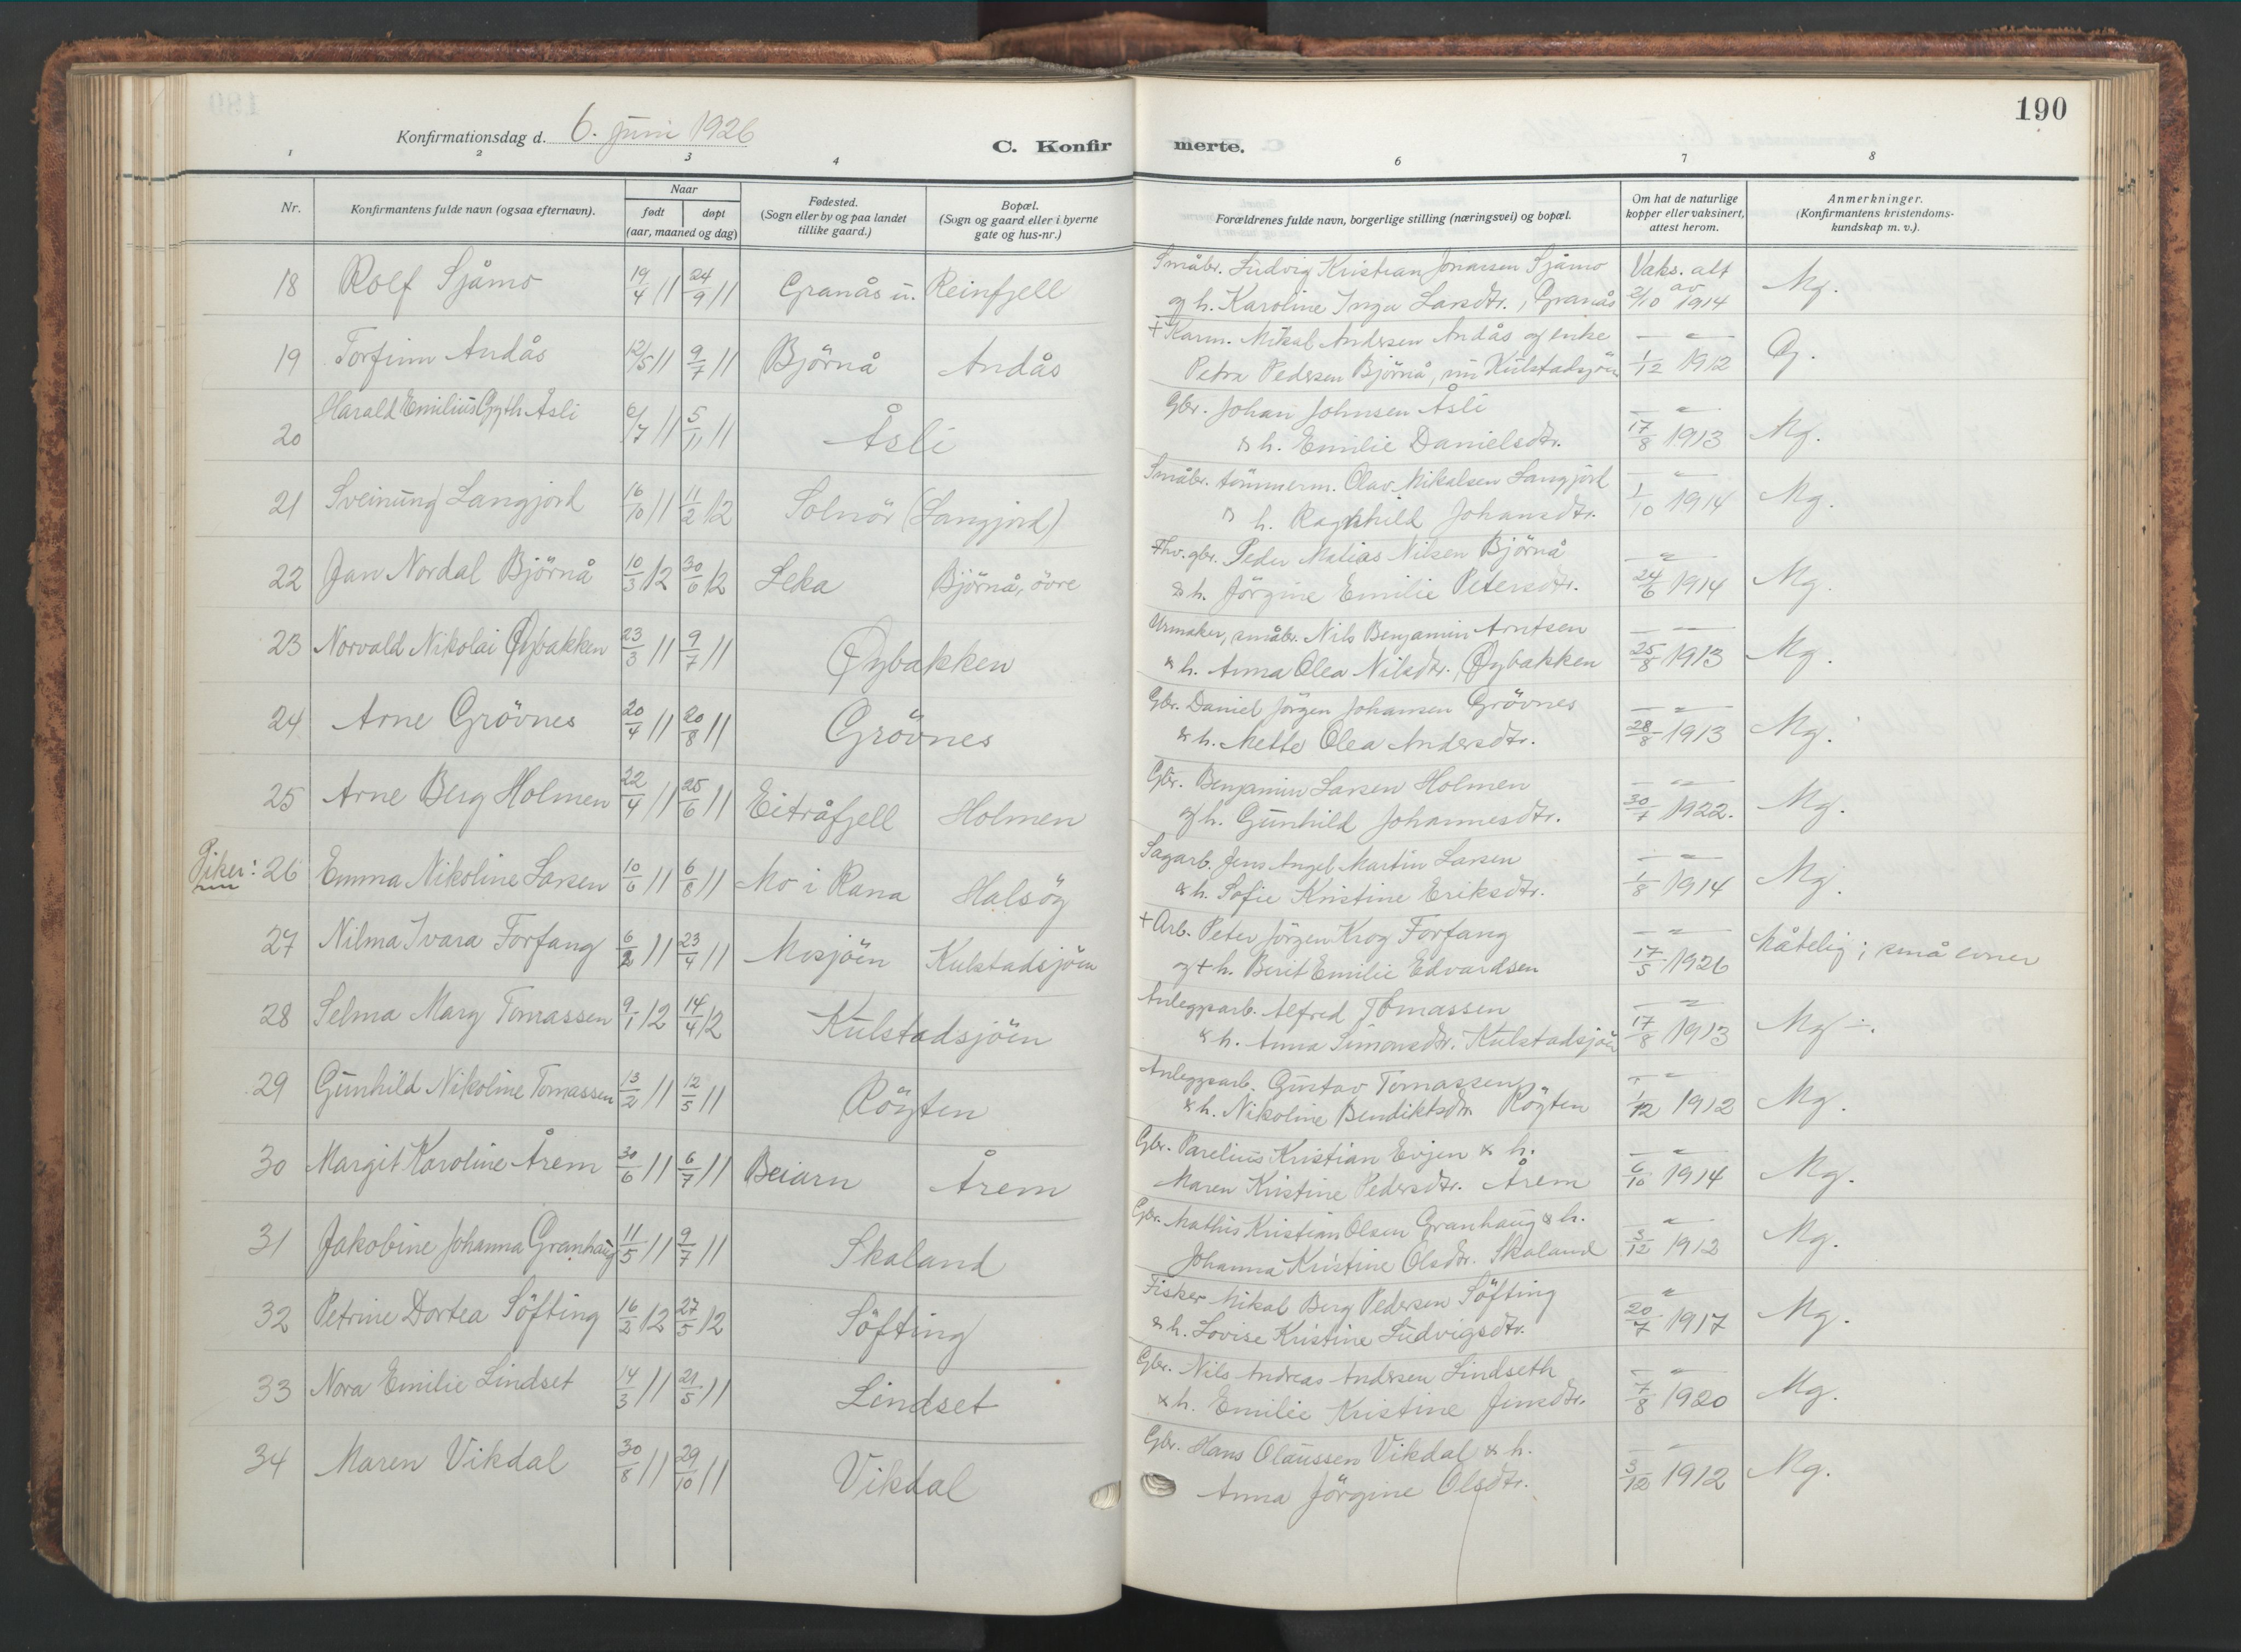 190
Konfirmationsdag d. 6. juni 1926
C. Konfirmerte.
1 2 3 4 6 7 8
Nr.
Konfirmantens fulde navn (ogsaa efternavn).
Naar
født døpt
(aar, maaned og dag)
Fødested.
(Sogn eller by og paa landet
tillike gaard.)
Bopæl.
(Sogn og gaard eller i byerne
gate og hus-nr.)
Forældrenes fulde navn, borgerlige stilling (næringsvei) og bopæl.
Om hat de naturlige
kopper eller vaksinert,
attest herom.
Anmerkninger.
(Konfirmantens kristendoms-
kundskap m. v.).
18 Rolf Sjåmo 19/4 11 24/9 11 Granås u. Reinfjell Småbr. Ludvig Kristian Jonassen Sjåmo Vaks. att av Mg.
og h. Karoline Inga Larsdtr., Granås 2/10 1914
19 Torfinn Andås 12/5 11 9/7 11 Björnå Andås + Karm. Mikal Andersen Andås og enke — " — G.
Petra Pedersen Björnå, nu Kulstadsjöen 1/12 1912
20 Harald Emilius Gyth Åsli 6/7 11 5/11 11 Åsli Gbr. Johan Johnsen Åsli — " — Mg.
& h. Emilie Danielsdtr. 17/8 1913
21 Sveinung Langjord 16/10 11 11/2 12 Solnör (Langjord) Småbr. tömmerm. Olav Mikalsen Langjord — " — Mg.
& h. Ragnhild Johansdtr. 1/10 1914
22 Jan Nordal Björnå 10/3 12 30/6 12 Leka Björnå, övre Fhv. gbr. Peder Matias Nilsen Björnå — " — Mg.
& h. Jörgine Emilie Petersdtr. 24/6 1914
23 Norvald Nikolai Øybakken 23/3 11 9/7 11 Øybakken Urmaker, småbr. Nils Benjamin Arntsen — " — Mg.
& h. Anna Olea Nilsdtr., Øybakken 25/8 1913
24 Arne Grövnes 20/4 11 20/8 11 Grövnes Gbr. Daniel Jörgen Johansen Grövnes — " — Mg.
& h. Mette Olea Andersdtr. 28/8 1913
25 Arne Berg Holmen 22/4 11 25/6 11 Eitråfjell Holmen Gbr. Benjamin Larsen Holmen — " — Mg.
og h. Gunhild Johannesdtr. 30/7 1922.
Piker: 26 Emma Nikoline Larsen 10/6 11 6/8 11 Mo i Rana Halsöy Sagarb. Jens Angel Martin Larsen — " — Mg.
& h. Sofie Kristine Eriksdtr. 1/8 1914
27 Nilma Ivara Forfang 6/2 11 23/4 11 Mosjöen Kulstadsjöen + Arb. Peter Jörgen Krog Forfang — " — Måtelig; små evner
og + h. Berit Emilie Edvardsen 17/5 1926
28 Selma Mary Tomassen 9/1 12 14/4 12 Kulstadsjöen Anleggsarb. Alfred Tomassen — " — Mg ÷.
& h. Anna Simonsdtr. Kulstadsjöen 17/8 1913
29 Gunhild Nikoline Tomassen 13/2 11 12/5 11 Röyten Anleggsarb. Gustav Tomassen — " — Mg.
& h. Nikoline Bendiktsdtr. Röyten 1/12 1912
30 Margit Karoline Årem 30/6 11 6/7 11 Beiarn Årem Gbr. Parelius Kristian Evjen & h. — " — Mg.
Maren Kristine Pedersdtr. Årem 6/10 1914
31 Jakobine Johanna Granhaug 11/5 11 9/7 11 Skaland Gbr. Mathis Kristian Olsen Granhaug & h. — " — Mg.
Johanna Kristine Olsdtr. Skaland 3/12 1912
32 Petrine Dortea Söfting 16/2 12 27/5 12 Söfting Fisker Mikal Berg Pedersen Söfting — " — Mg.
& h. Lovise Kristine Ludvigsdtr. 20/7 1917
33 Nora Emilie Lindset 14/3 11 21/5 11 Lindset Gbr. Nils Andreas Andersen Lindseth — " — Mg.
& h. Emilie Kristine Jensdtr. 7/8 1920
34 Maren Vikdal 30/8 11 29/10 11 Vikdal Gbr. Hans Olaussen Vikdal & h. — " — Mg.
Anna Jörgine Olsdtr. 3/12 1912